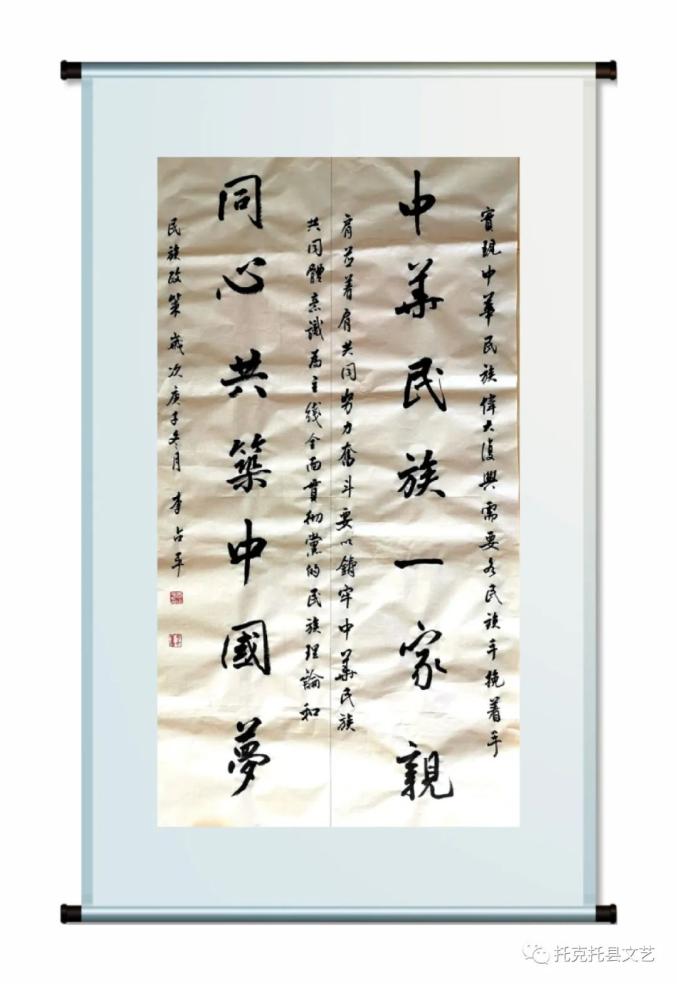 實現中華民族偉大復興需要各民族手挽着手
中華民族一家親
肩並着肩共同努力奮斗要以鑄牢中華民族
共同體意識為主綫全面貫彻黨的民族理論和
同心共築中國夢
民族政策 歲次庚子冬月 李占平
托克托县文艺